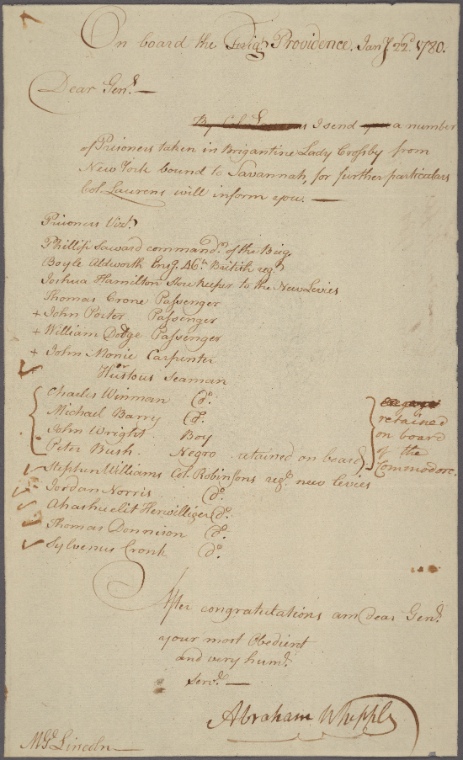 On board the Frigt Providence. Jany 22d 1780.
Dear Genl.—
By Col. Laurens I send you a number
of Prisoners taken in Brigantine Lady Crossby from
New York bound to Savannah, for further particulars
Col. Laurens will inform you.—
Prisoners Vizt.
Phillip Saward commandr. of the Brig.
Boyle Aldworth Ensn. 46th British regt.
Joshua Hamilton Storekeeper to the New Levies
Thomas Crone Passenger
+ John Porter Passenger
+ William Dodge Passenger
+ John Monie Carpenter
Hurtous Seaman
Charles Winman Do.
Michael Barry Do.
John Wright Boy
Peter Bush. Negro retained on board
retained
on board
of the
Commodore.
Stephen Williams Col. Robinsons regt. new Levies
Jordan Norris Do.
Ahashuelit Herwilliger Do.
Thomas Dennison Do.
Sylvenus Cronk Do.
After congratulations am Dear Genl.
your most Obedient
and very huml.
Servt.—
Abraham Whipple
M. Gl. Lincoln—